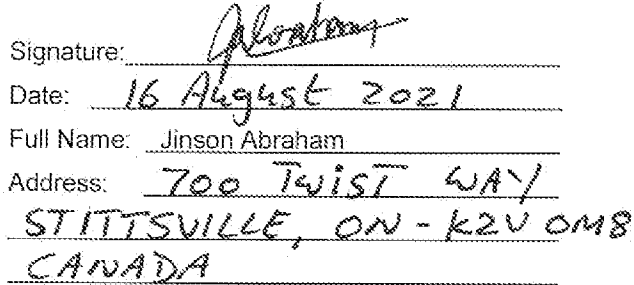 Signature:
Date: 16 August 2021
Full Name: Jinson Abraham
Address: 700 TWIST WAY
STITTSVILLE, ON - K2V 0M8
CANADA